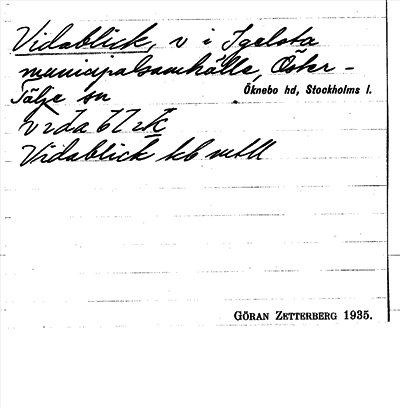 Vidablick, v i Igelsta
municipalsamhälle, Öster-
Tälje sn
Öknebo hd, Stockholms l.
Vidablick kb mtll
GÖRAN ZETTERBERG 1935.